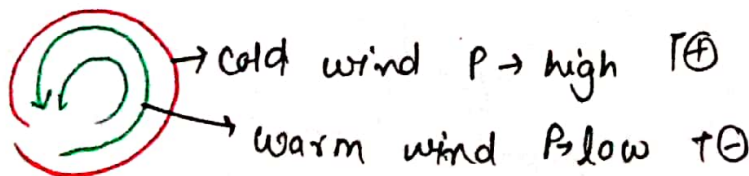 → cold wind P → high ↑⊕
→ warm wind P→low ↑⊖